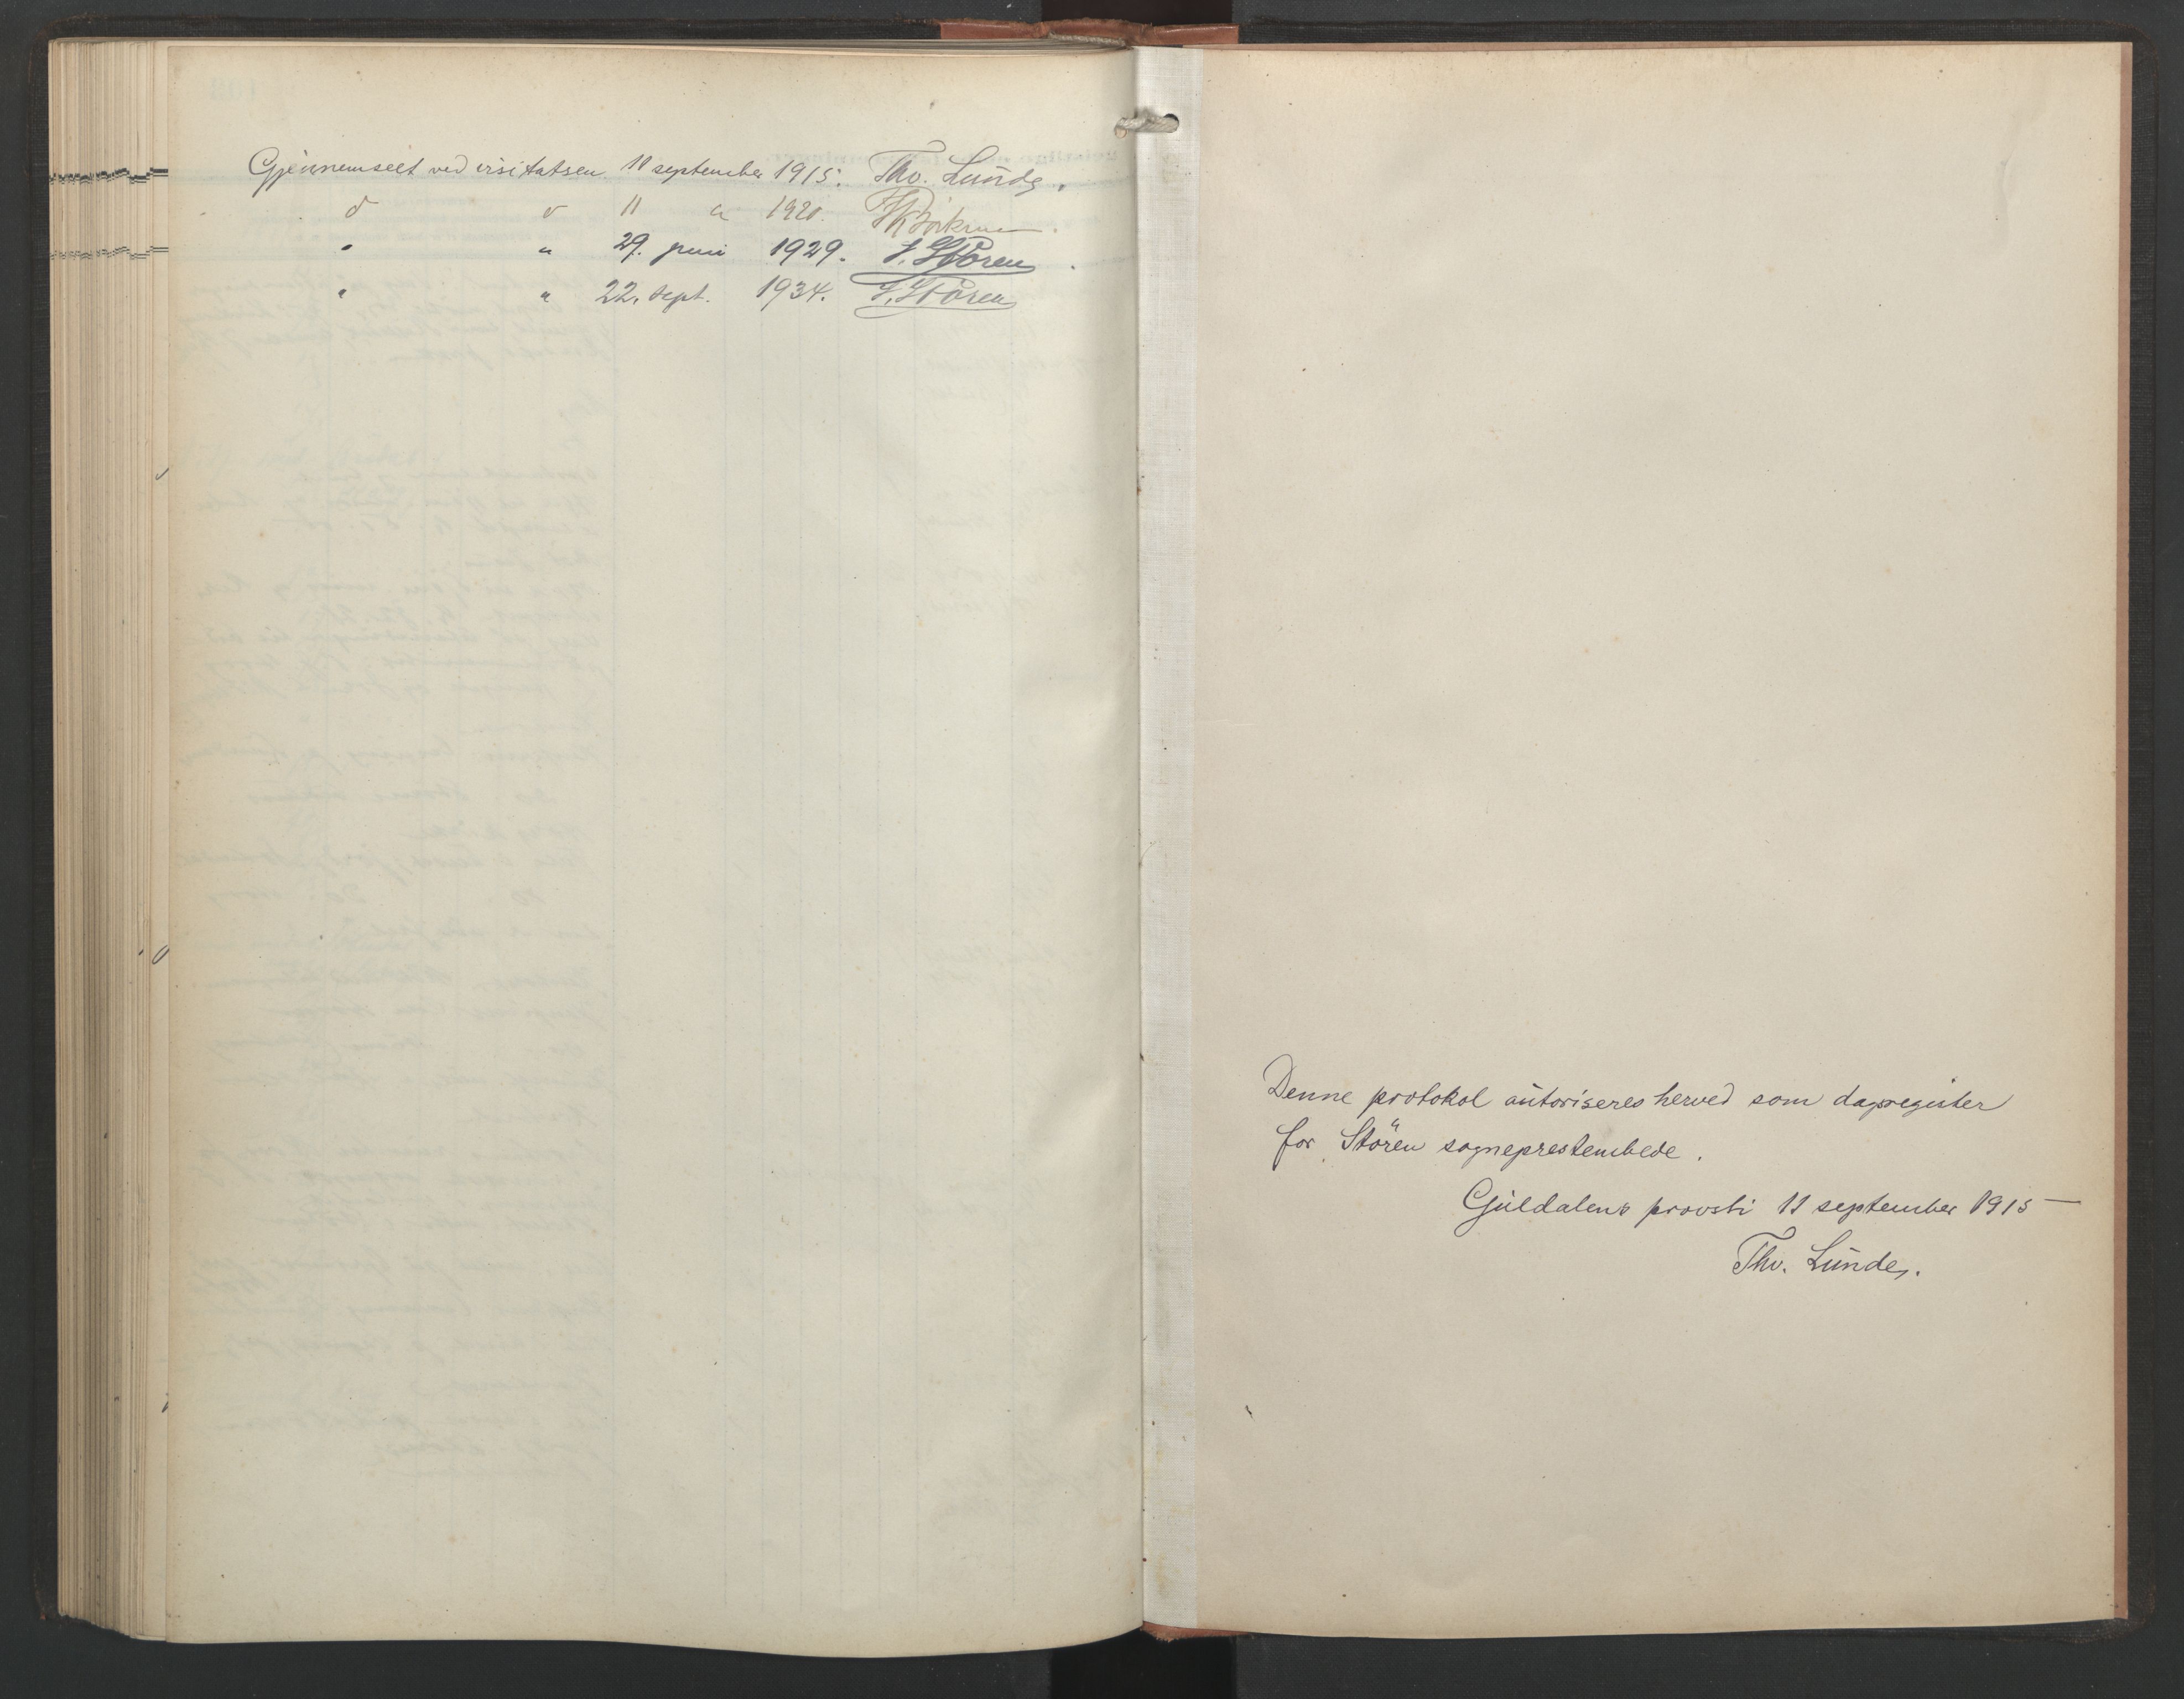 Gjennemseet ved visitatsen 11 september 1915. Thv. Lunde.
d v 11 " 1920.
" " 29. juni 1929. J. Støren.
" " 22. sept. 1934. J. Støren
Denne protokol autoriseres herved som dagregister
for Stören sogneprestembede.
Guldalens provsti 11 september 1915
Thv. Lunde.